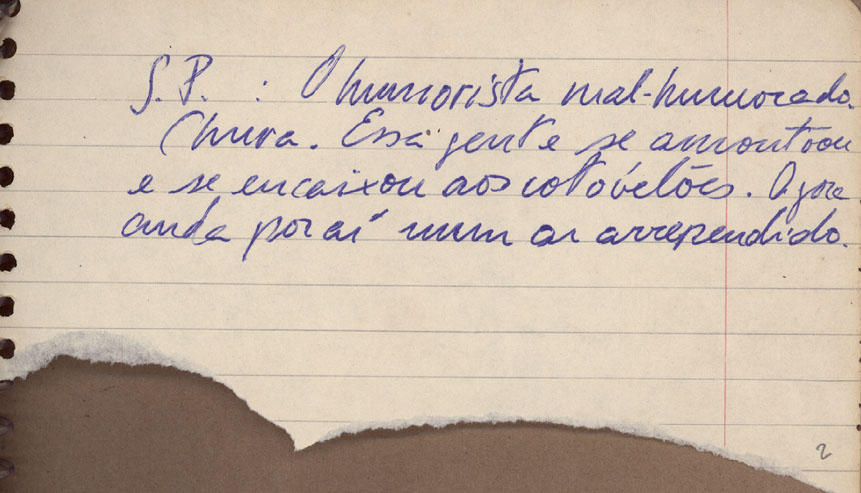 S.P. : O humorista mal-humorado.
Chuva. Essa gente se amontoou
e se encaixou aos cotovelões. Agora
anda por aí num ar arrependido.
2